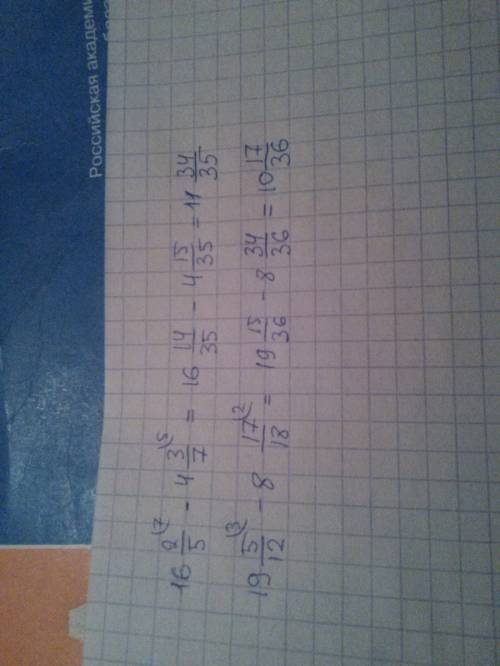 Российская академи
16 2/5 (7 - 4 3/7 (5 = 16 14/35 - 4 15/35 = 11 34/35
19 5/12 (3 - 8 17/18 (2 = 19 15/36 - 8 34/36 = 10 17/36